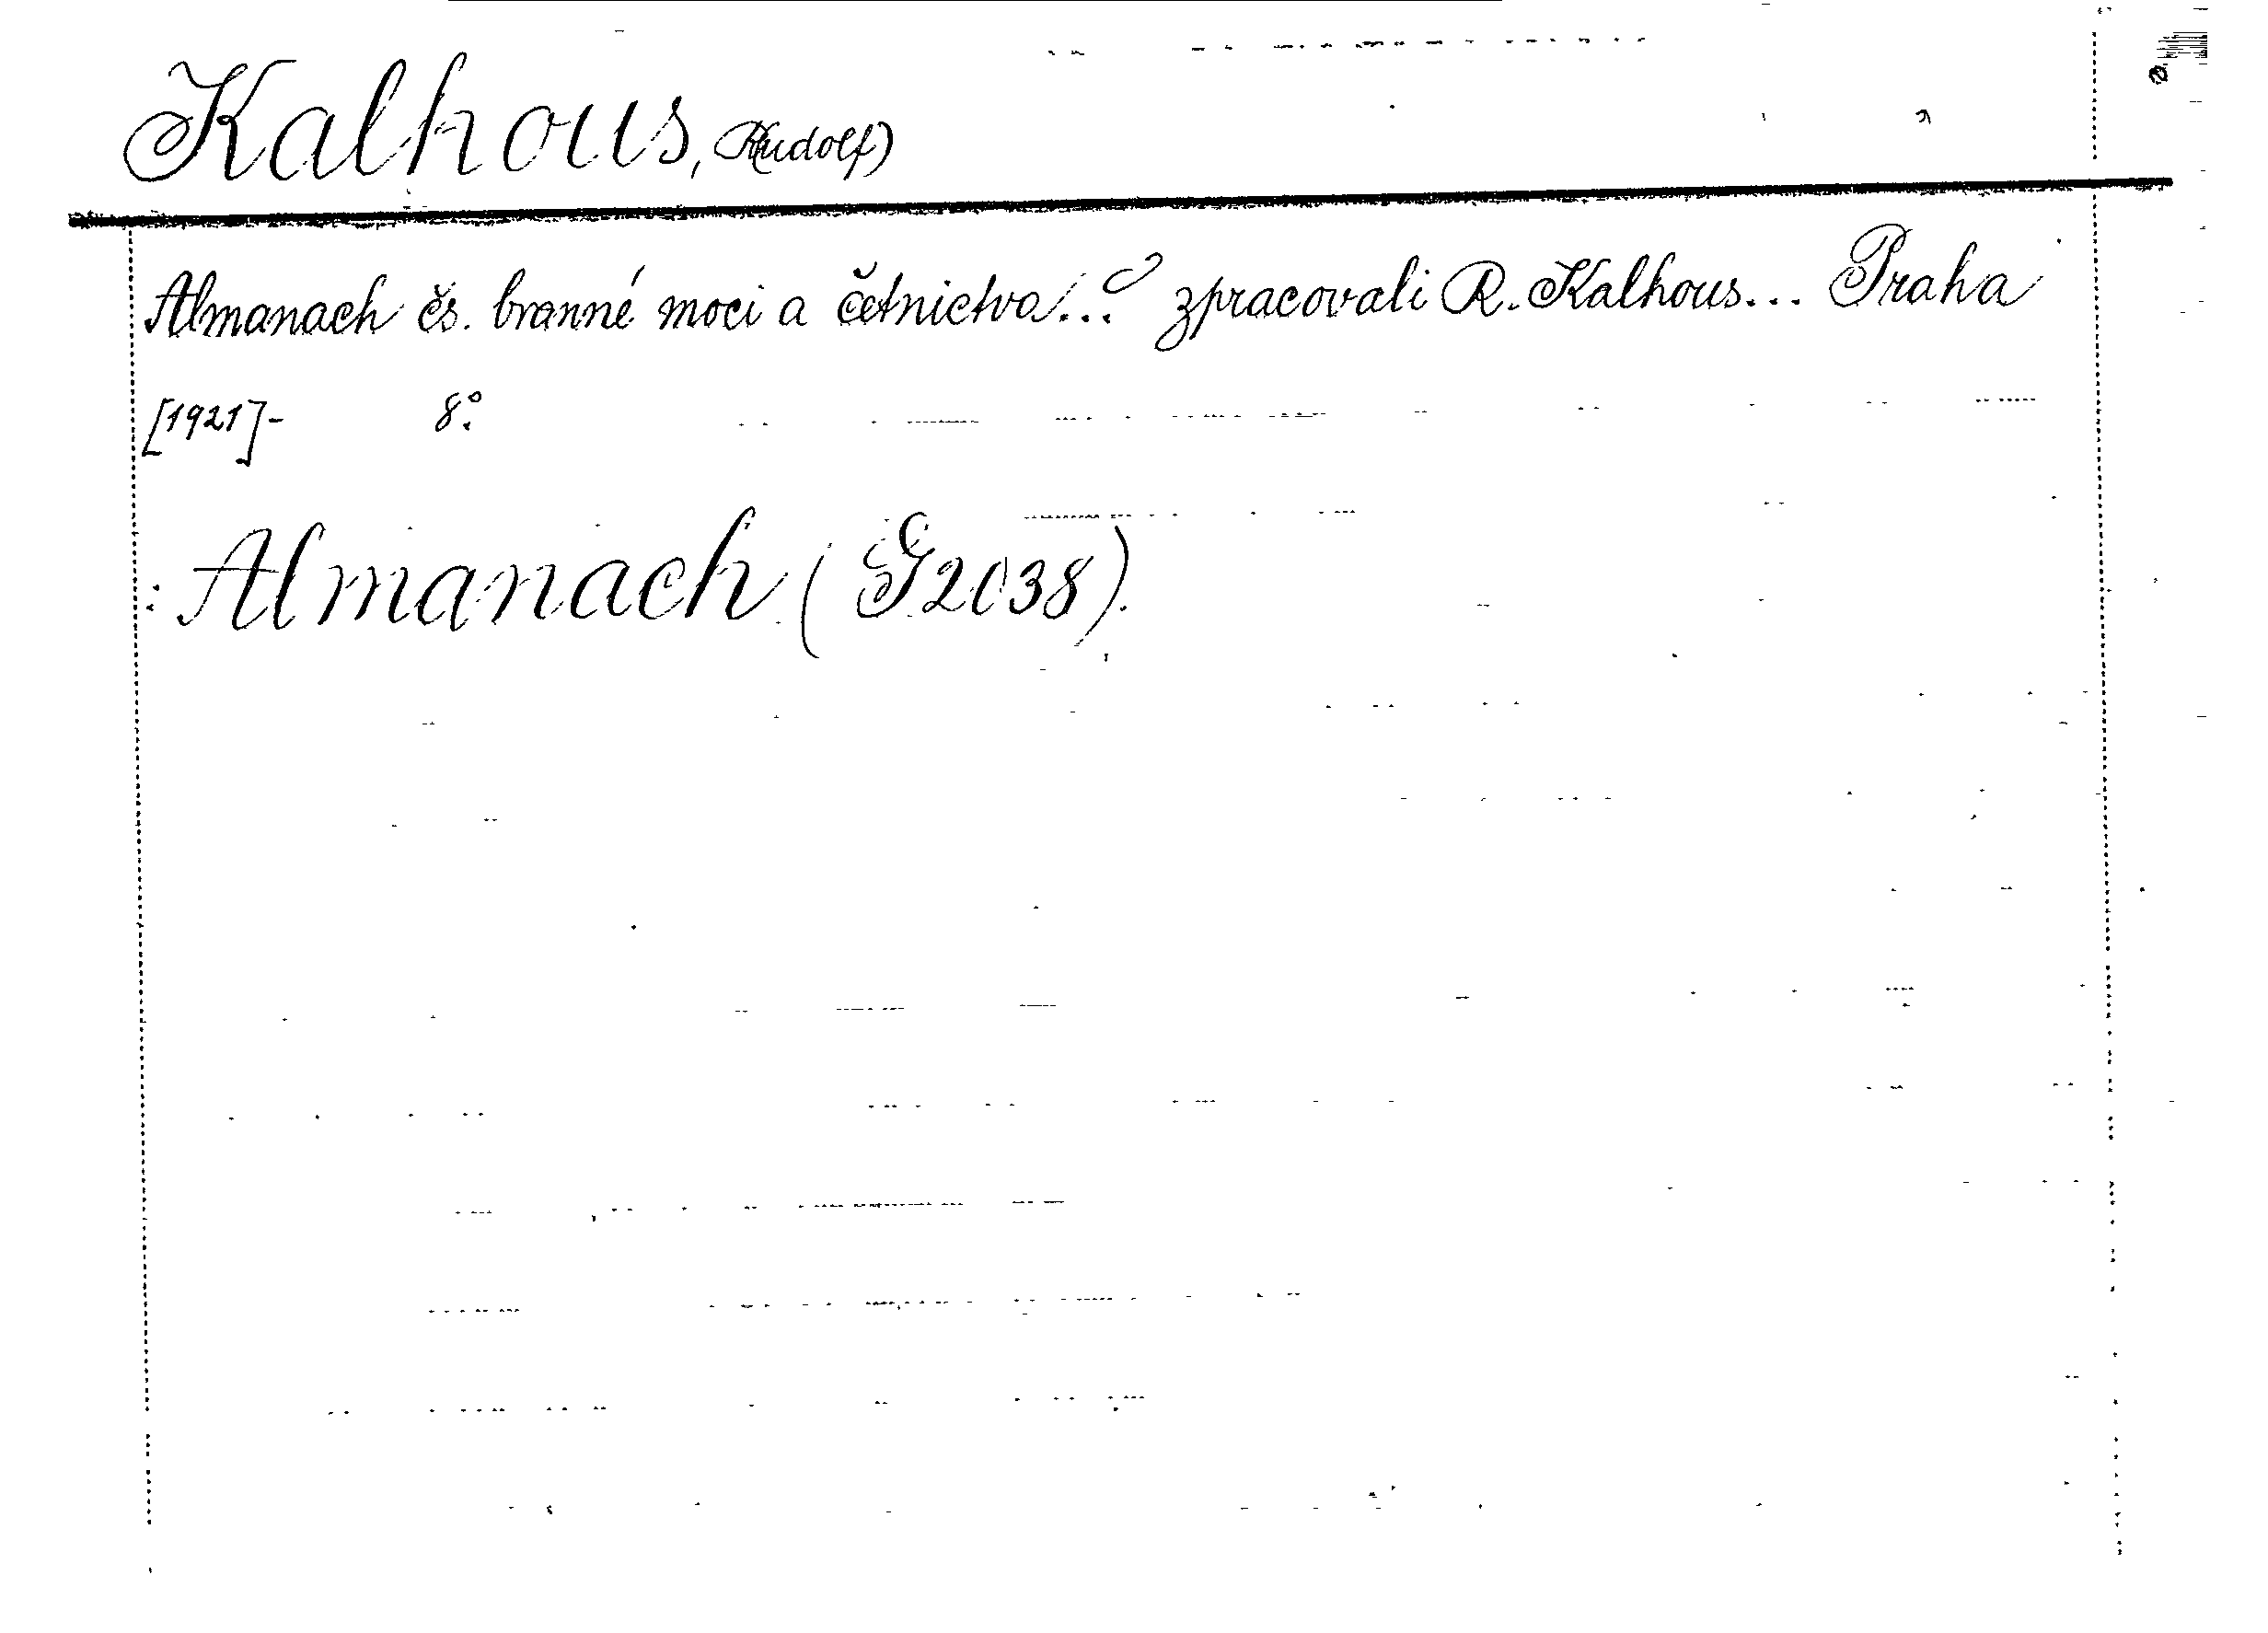 Kalhous, Rudolf)
Almanach čs. branné moci a četnictva... zpracovali R. Kalhous... Praha
[1921]- 8°.
: Almanach (G 2038).